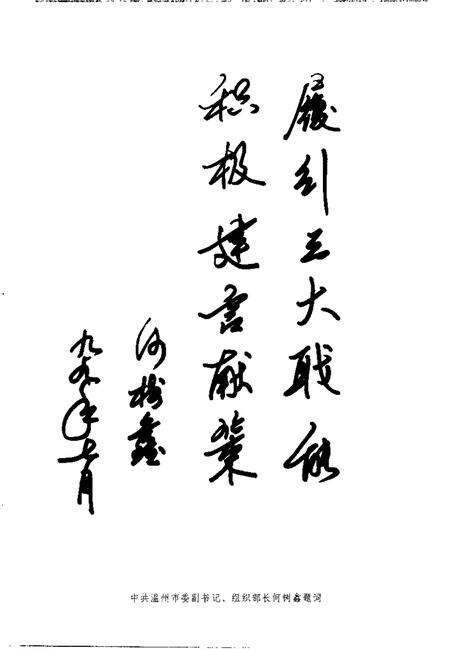 履行三大职能
积极建言献策
何树鑫
九九年七月
中共温州市委副书记、组织部长何树鑫题词